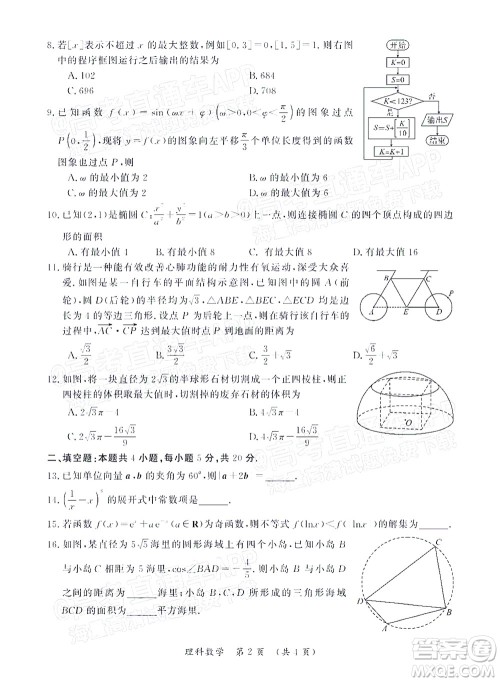 8. 若[x]表示不超过 x 的最大整数,例如[0.3]=0,[1.5]=1.则右图
中的程序框图运行之后输出的结果为
A. 102 B. 684
C. 696 D. 708
开始
K=0
S=0
K≤123?
否
是
输出S
S=S+[K/10]
结束
K=K+1
9. 已知函数 f(x)=sin(ωx+φ)(|φ|<π/2)的图象过点
P(0,1/2),现将 y=f(x)的图象向左平移 π/3 个单位长度得到的函数
图象也过点 P,则
A. ω的最小值为 2 B. ω的最小值为 6
C. ω的最大值为 2 D. ω的最大值为 6
10. 已知(2,1)是椭圆 C:x²/a²+y²/b²=1(a>b>0)上一点,则连接椭圆 C 的四个顶点构成的四边
形的面积
A. 有最小值 1 B. 有最小值 8 C. 有最大值 8 D. 有最大值 16
11. 骑行是一种能有效改善心肺功能的耐力性有氧运动,深受大众喜
爱.如图是某一自行车的平面结构示意图,已知图中的圆 A(前
轮),圆 D(后轮)的半径均为 √3,△ABE,△BEC,△ECD 均是边
长为 4 的等边三角形.设点 P 为后轮上一点,则在骑行该自行车的
过程中,AC·CP 达到最大值时点 P 到地面的距离为
A. √3/2 B. 3√3/2 C. √3/2+√3 D. 
A E D B C P
12. 如图,将一块直径为 2√3 的半球形石材切割成一个正四棱柱,则正
四棱柱的体积取最大值时,切割掉的废弃石材的体积为
A. 2√3π−4 B. 2√3π−16√3/9
C. 4√3π−4 D. 4√3π−16√3/9
O
二、填空题:本大题共 4 小题,每小题 5 分,共 20 分.
13. 已知单位向量 a,b 的夹角为 60°,则|a+2b|=
14. 的展开式中常数项为
15. 若函数 f(x)=eˣ+ae⁻ˣ(a∈R)为奇函数,则不等式 f(ln x)<f(|ln x|)的解集为
16. 如图,某直径为 海里的圆形海域上有四个小岛.已知小岛 B
与小岛 C 相距为 5 海里,cos∠BAD=−4/5.则小岛 B 与小岛 D
之间的距离为 海里;小岛 B,C,D 所形成的三角形海域
BCD 的面积最大值为 平方海里.
C D B A
理科数学 第 2 页 (共 4 页)